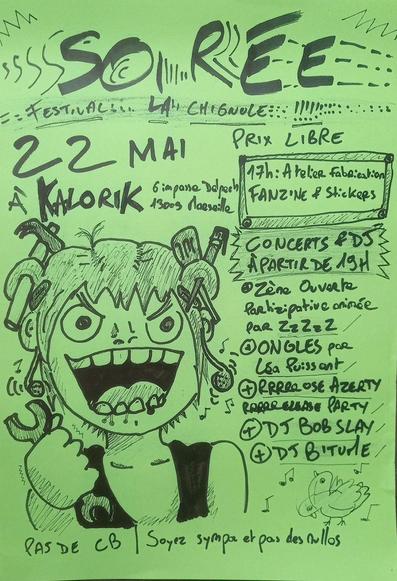 SOIRÉE
FESTIVAL LA CHIGNOLE
22 MAI
PRIX LIBRE
À KALORIK
6 impasse Delpech
13009 Marseille
17h: Atelier fabrication
FANZINE & Stickers
CONCERTS & DJ
À PARTIR DE 19H
Zène Ouverte
Partizipative animée
par ZzZzZ
+ ONGLES par
Léa Puissant
+ RRRRROSE AZERTY
RRRRRELEASE PARTY
+ DJ BOB SLAY
+ DJ BITUME
PAS DE CB | Soyez sympa et pas des nullos